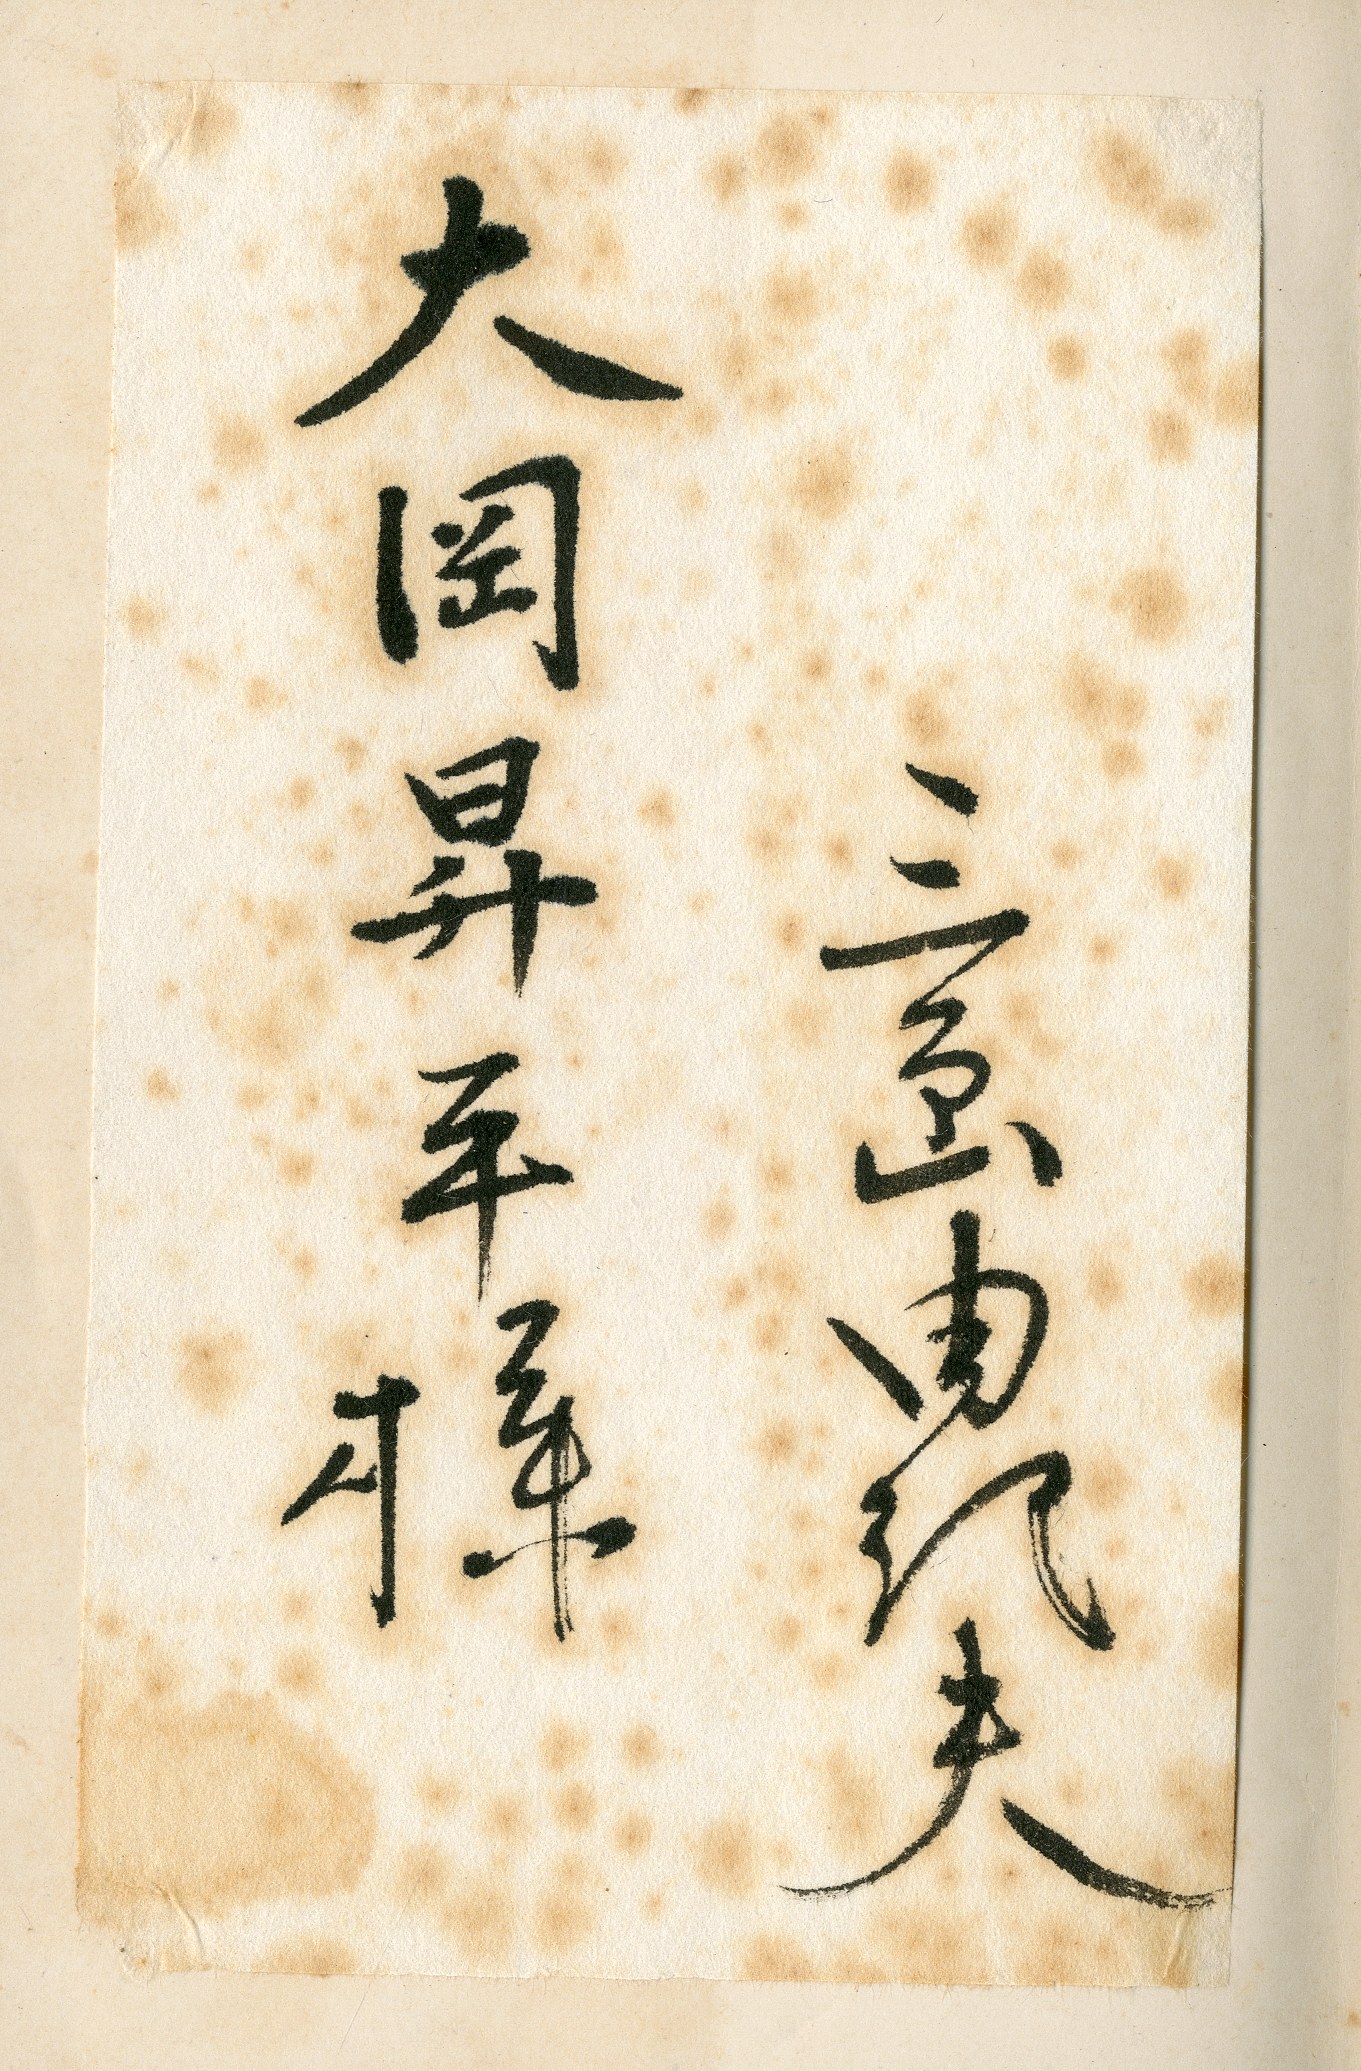 三島由紀夫
大岡昇平様